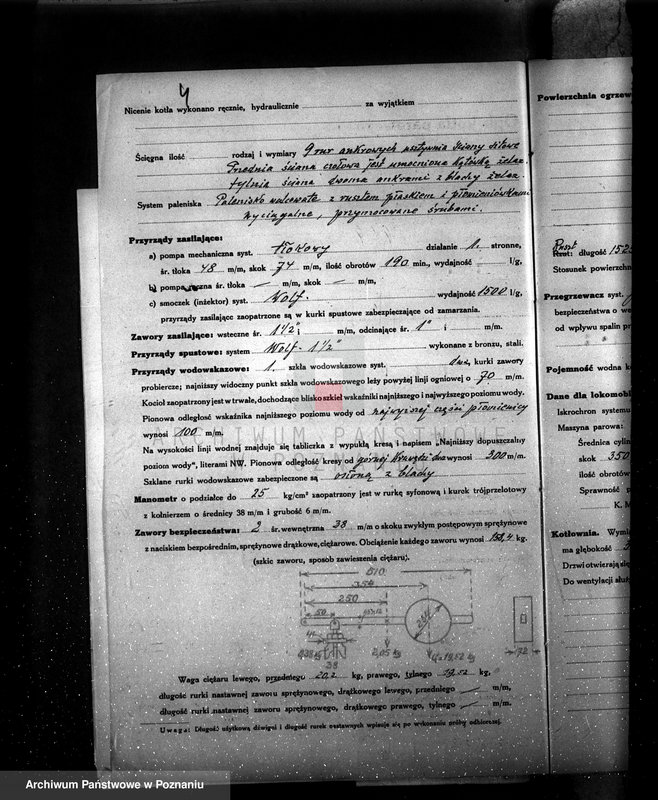 4
Nicenie kotła wykonano ręcznie, hydraulicznie za wyjątkiem
Ścięgna ilość rodzaj i wymiary 9 rur ankrowych usztywnia ściany sitowe
Przednia ściana czołowa jest umocniona kątówką żelaz.
tylnia ściana dwoma ankrami z blachy żelaz.
System paleniska Palenisko walcowate z rusztem płaskiem i płomieniówkami
wyciągalne, przymocowane śrubami.
Przyrządy zasilające:
a) pompa mechaniczna syst. tłokowy działanie 1. stronne,
śr. tłoka 48 m/m, skok 74 m/m, ilość obrotów 190 min., wydajność l/g,
b) pompa ręczna śr. tłoka — m/m, skok — m/m,
c) smoczek (inżektor) syst. Wolf. wydajność 1500 l/g,
przyrządy zasilające zaopatrzone są w kurki spustowe zabezpieczające od zamarzania.
Zawory zasilające: wsteczne śr. 1½" i m/m, odcinające śr. 1" i m/m.
Przyrządy spustowe: system Wolf. 1½" wykonane z bronzu, stali.
Przyrządy wodowskazowe: 1. szkła wodowskazowe syst. dwa, kurki zawory
probiercze; najniższy widoczny punkt szkła wodowskazowego leży powyżej linji ogniowej o 70 m/m.
Kocioł zaopatrzony jest w trwałe, dochodzące blisko szkieł wskaźniki najniższego i najwyższego poziomu wody.
Pionowa odległość wskaźnika najniższego poziomu wody od najwyższej części płomienicy
wynosi 100 m/m.
Na wysokości linji wodnej znajduje się tabliczka z wypukłą kresą i napisem „Najniższy dopuszczalny
poziom wody", literami NW. Pionowa odległość kresy od górnej krawędzi dna wynosi 300 m/m.
Szklane rurki wodowskazowe zabezpieczone są osłoną z blachy
Manometr o podziałce do 25 kg/cm² zaopatrzony jest w rurkę syfonową i kurek trójprzelotowy
z kołnierzem o średnicy 38 m/m i grubość 6 m/m.
Zawory bezpieczeństwa: 2 śr. wewnętrzna 38 m/m o skoku zwykłym postępowym sprężynowe
z naciskiem bezpośrednim, sprężynowe drążkowe, ciężarowe. Obciążenie każdego zaworu wynosi 158,4 kg.
(szkic zaworu, sposób zawieszenia ciężaru).
510
354
250
50
231
38
2,05 kg
G=19,52 kg
72
Waga ciężaru lewego, przedniego 20,2 kg, prawego, tylnego 19,52 kg,
długość rurki nastawnej zaworu sprężynowego, drążkowego lewego, przedniego — m/m,
długość rurki nastawnej zaworu sprężynowego, drążkowego prawego, tylnego — m/m.
Uwaga: Długość użytkową dźwigni i długość rurek nastawnych wpisuje się po wykonaniu próby odbiorczej.
Powierzchnia ogrzew
Ruszt
Rzut: długość 152
Stosunek powierzchn
Przegrzewacz syst.
bezpieczeństwa o we
od wpływu spalin pr
Pojemność wodna k
Dane dla lokomobi
Iskrochron systemu
Maszyna parowa:
Średnica cylin
skok 350
ilość obrotów
Sprawność p
K. M
Kotłownia. Wymi
ma głębokość
Drzwi otwierają się
Do wentylacji służ
ARCHIWUM PAŃSTWOWE
W POZNANIU
Archiwum Państwowe w Poznaniu